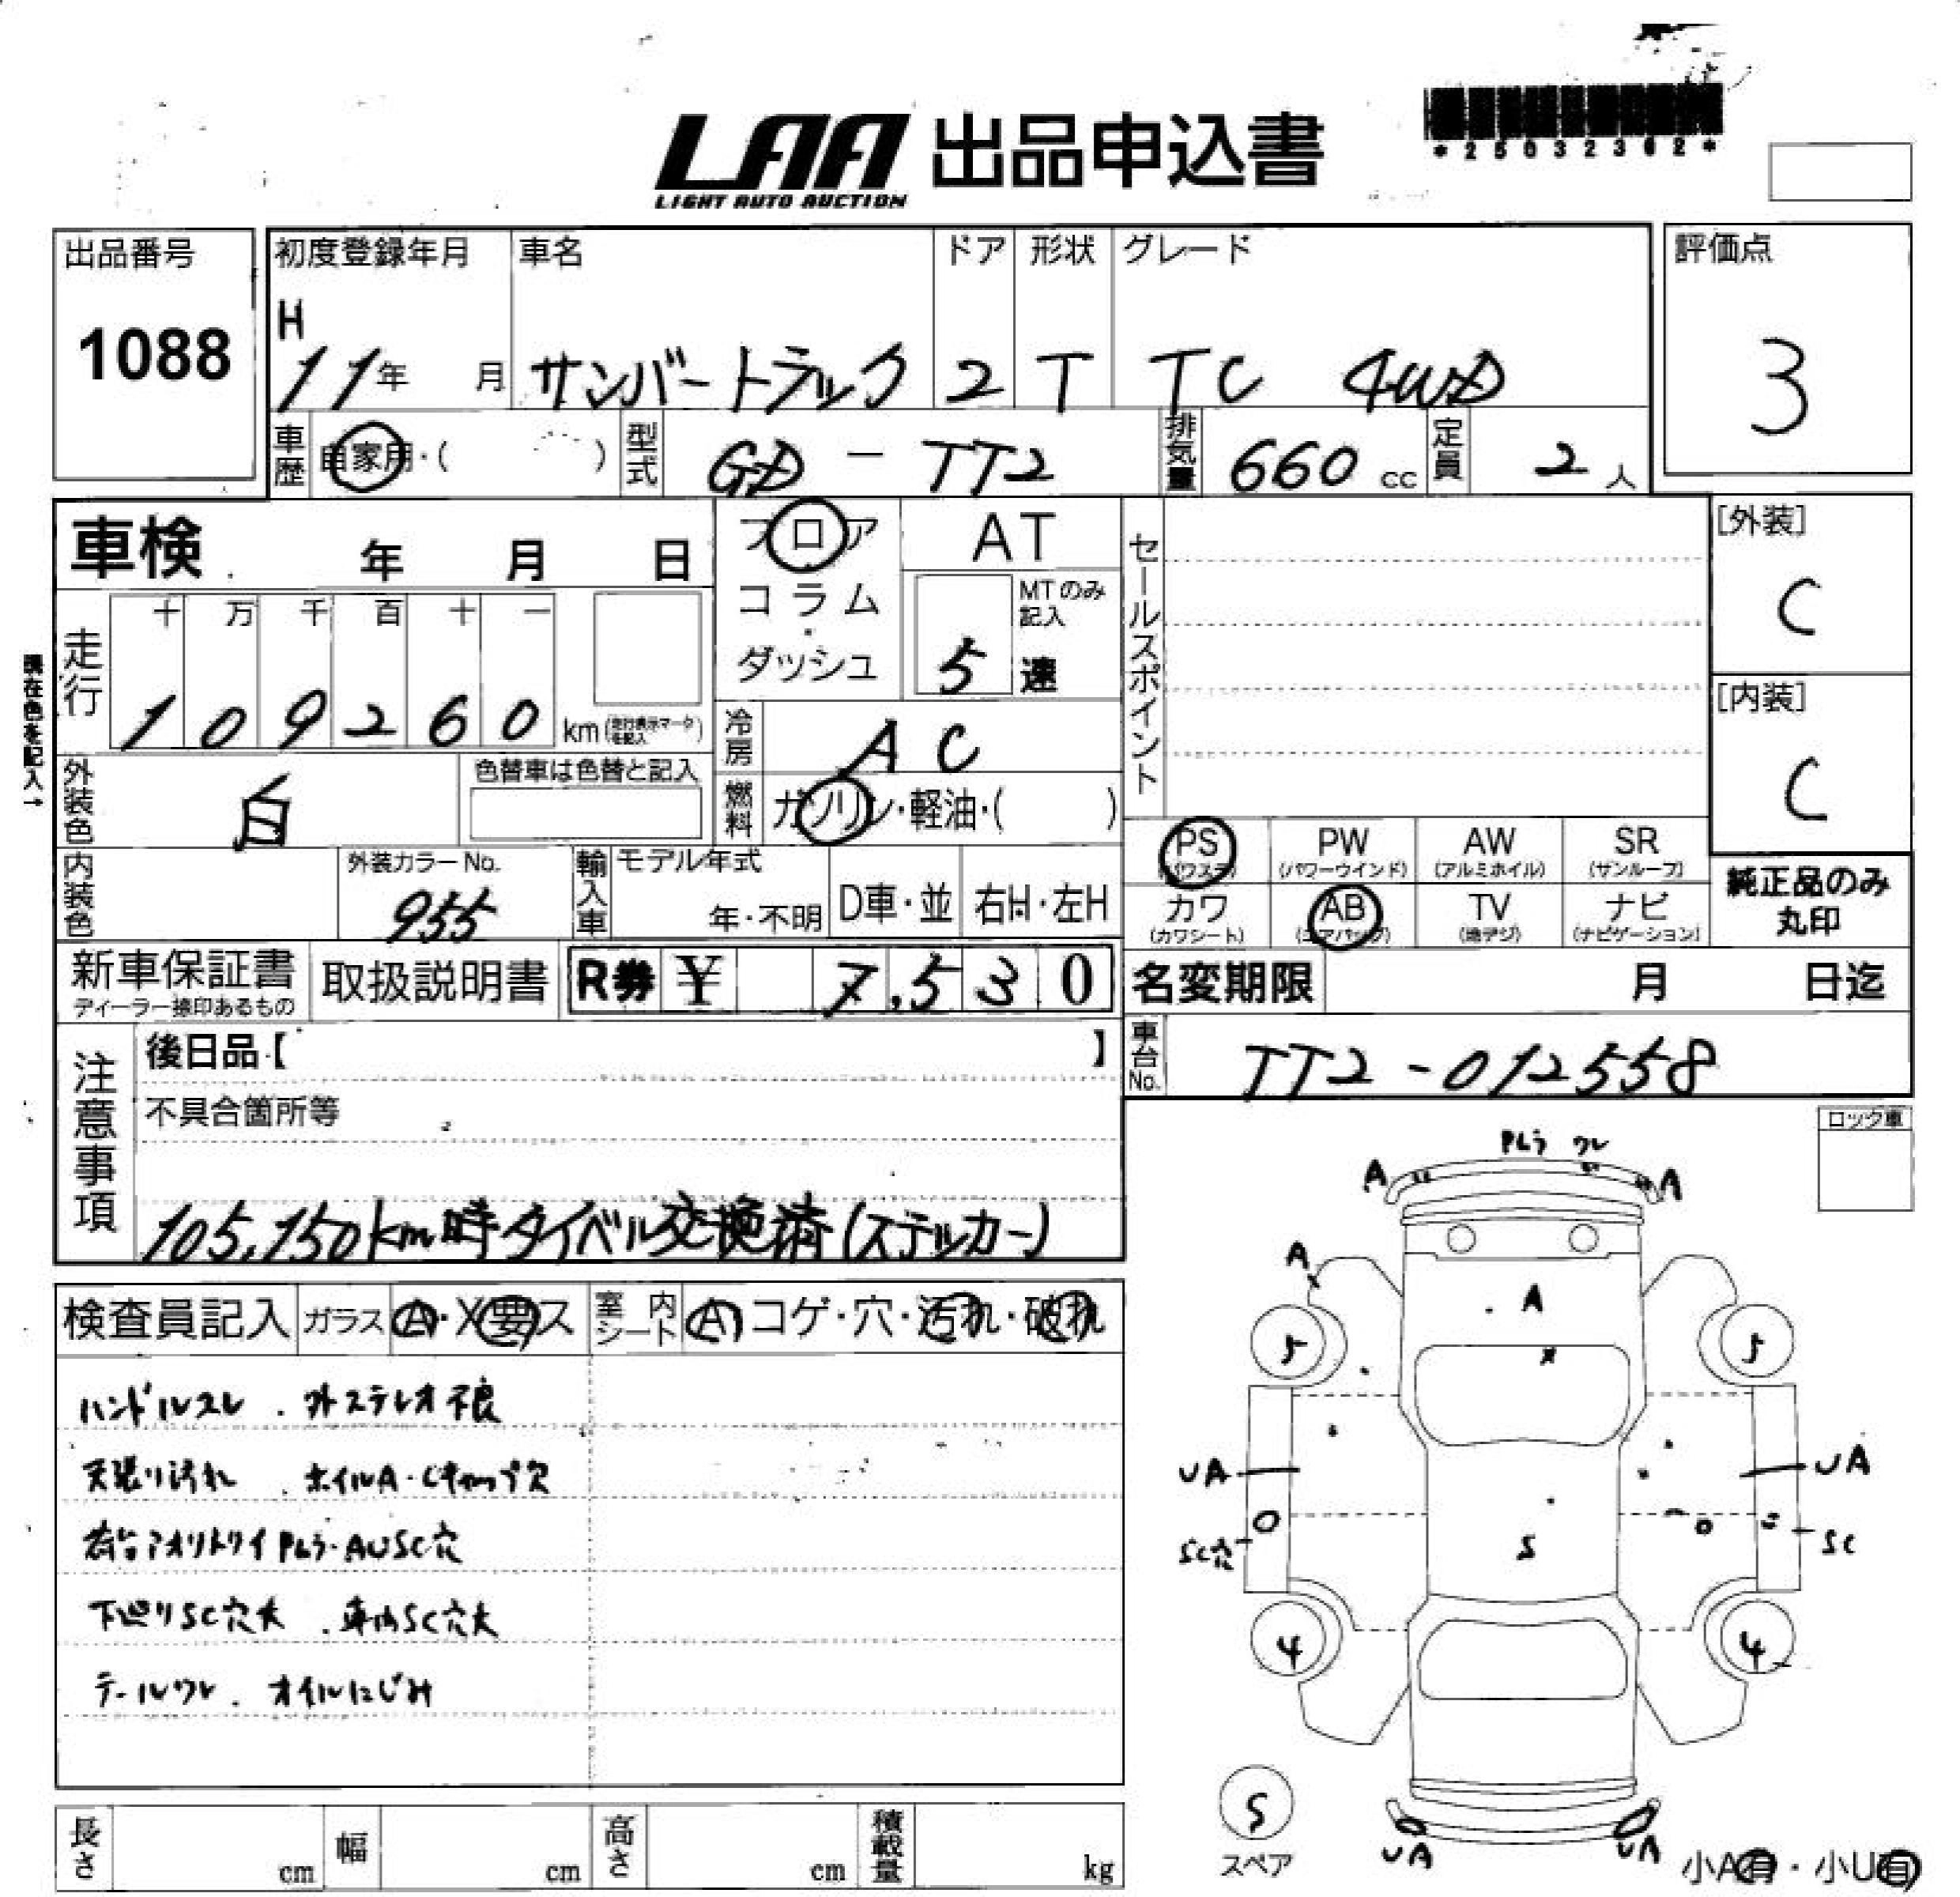 LAA 出品申込書
LIGHT AUTO AUCTION
*25032302*
出品番号
1088
初度登録年月
H
11年 月
車名
サンバートラック
ドア
2
形状
T
グレード
TC 4WD
評価点
3
車歴
自家用・( )
型式
GD - TT2
排気量
660 cc
定員
2 人
車検 年 月 日
フロア
コラム
ダッシュ
AT
MTのみ記入
5 速
セールスポイント
[外装]
C
[内装]
C
現在色を記入→
走行
十 万 千 百 十 一
1 0 9 2 6 0 km (走行表示マークを記入)
冷房
AC
外装色
白
色替車は色替と記入
燃料
ガソリン・軽油・( )
内装色
外装カラーNo.
955
輸入車
モデル年式
年・不明
D車・並
右H・左H
PS (パワステ)
PW (パワーウインド)
AW (アルミホイル)
SR (サンルーフ)
カワ (カワシート)
AB (エアバック)
TV (地デジ)
ナビ (ナビゲーション)
純正品のみ
丸印
新車保証書
ディーラー捺印あるもの
取扱説明書
R券 ¥ 7,530
名変期限 月 日迄
車台No.
TT2-012558
注意事項
後日品【 】
不具合箇所等
105,150km時タイベル交換済(ステッカー)
ロック車
検査員記入
ガラス A・X要ス
室内シート A コゲ・穴・汚れ・破れ
ハンドルスレ . 外ステレオ不良
天張り汚れ . ホイルA・Cキャップ欠
荷台アオリトリイPムラ・AUSC穴
下廻りSC穴大 . 車内SC穴大
テールワレ . オイルにじみ
Pムラ ワレ
A A
A
A
5 5
UA UA
SC穴 SC
S
4 4
S
スペア
UA UA
小A有・小U有
長さ cm
幅 cm
高さ cm
積載量 kg